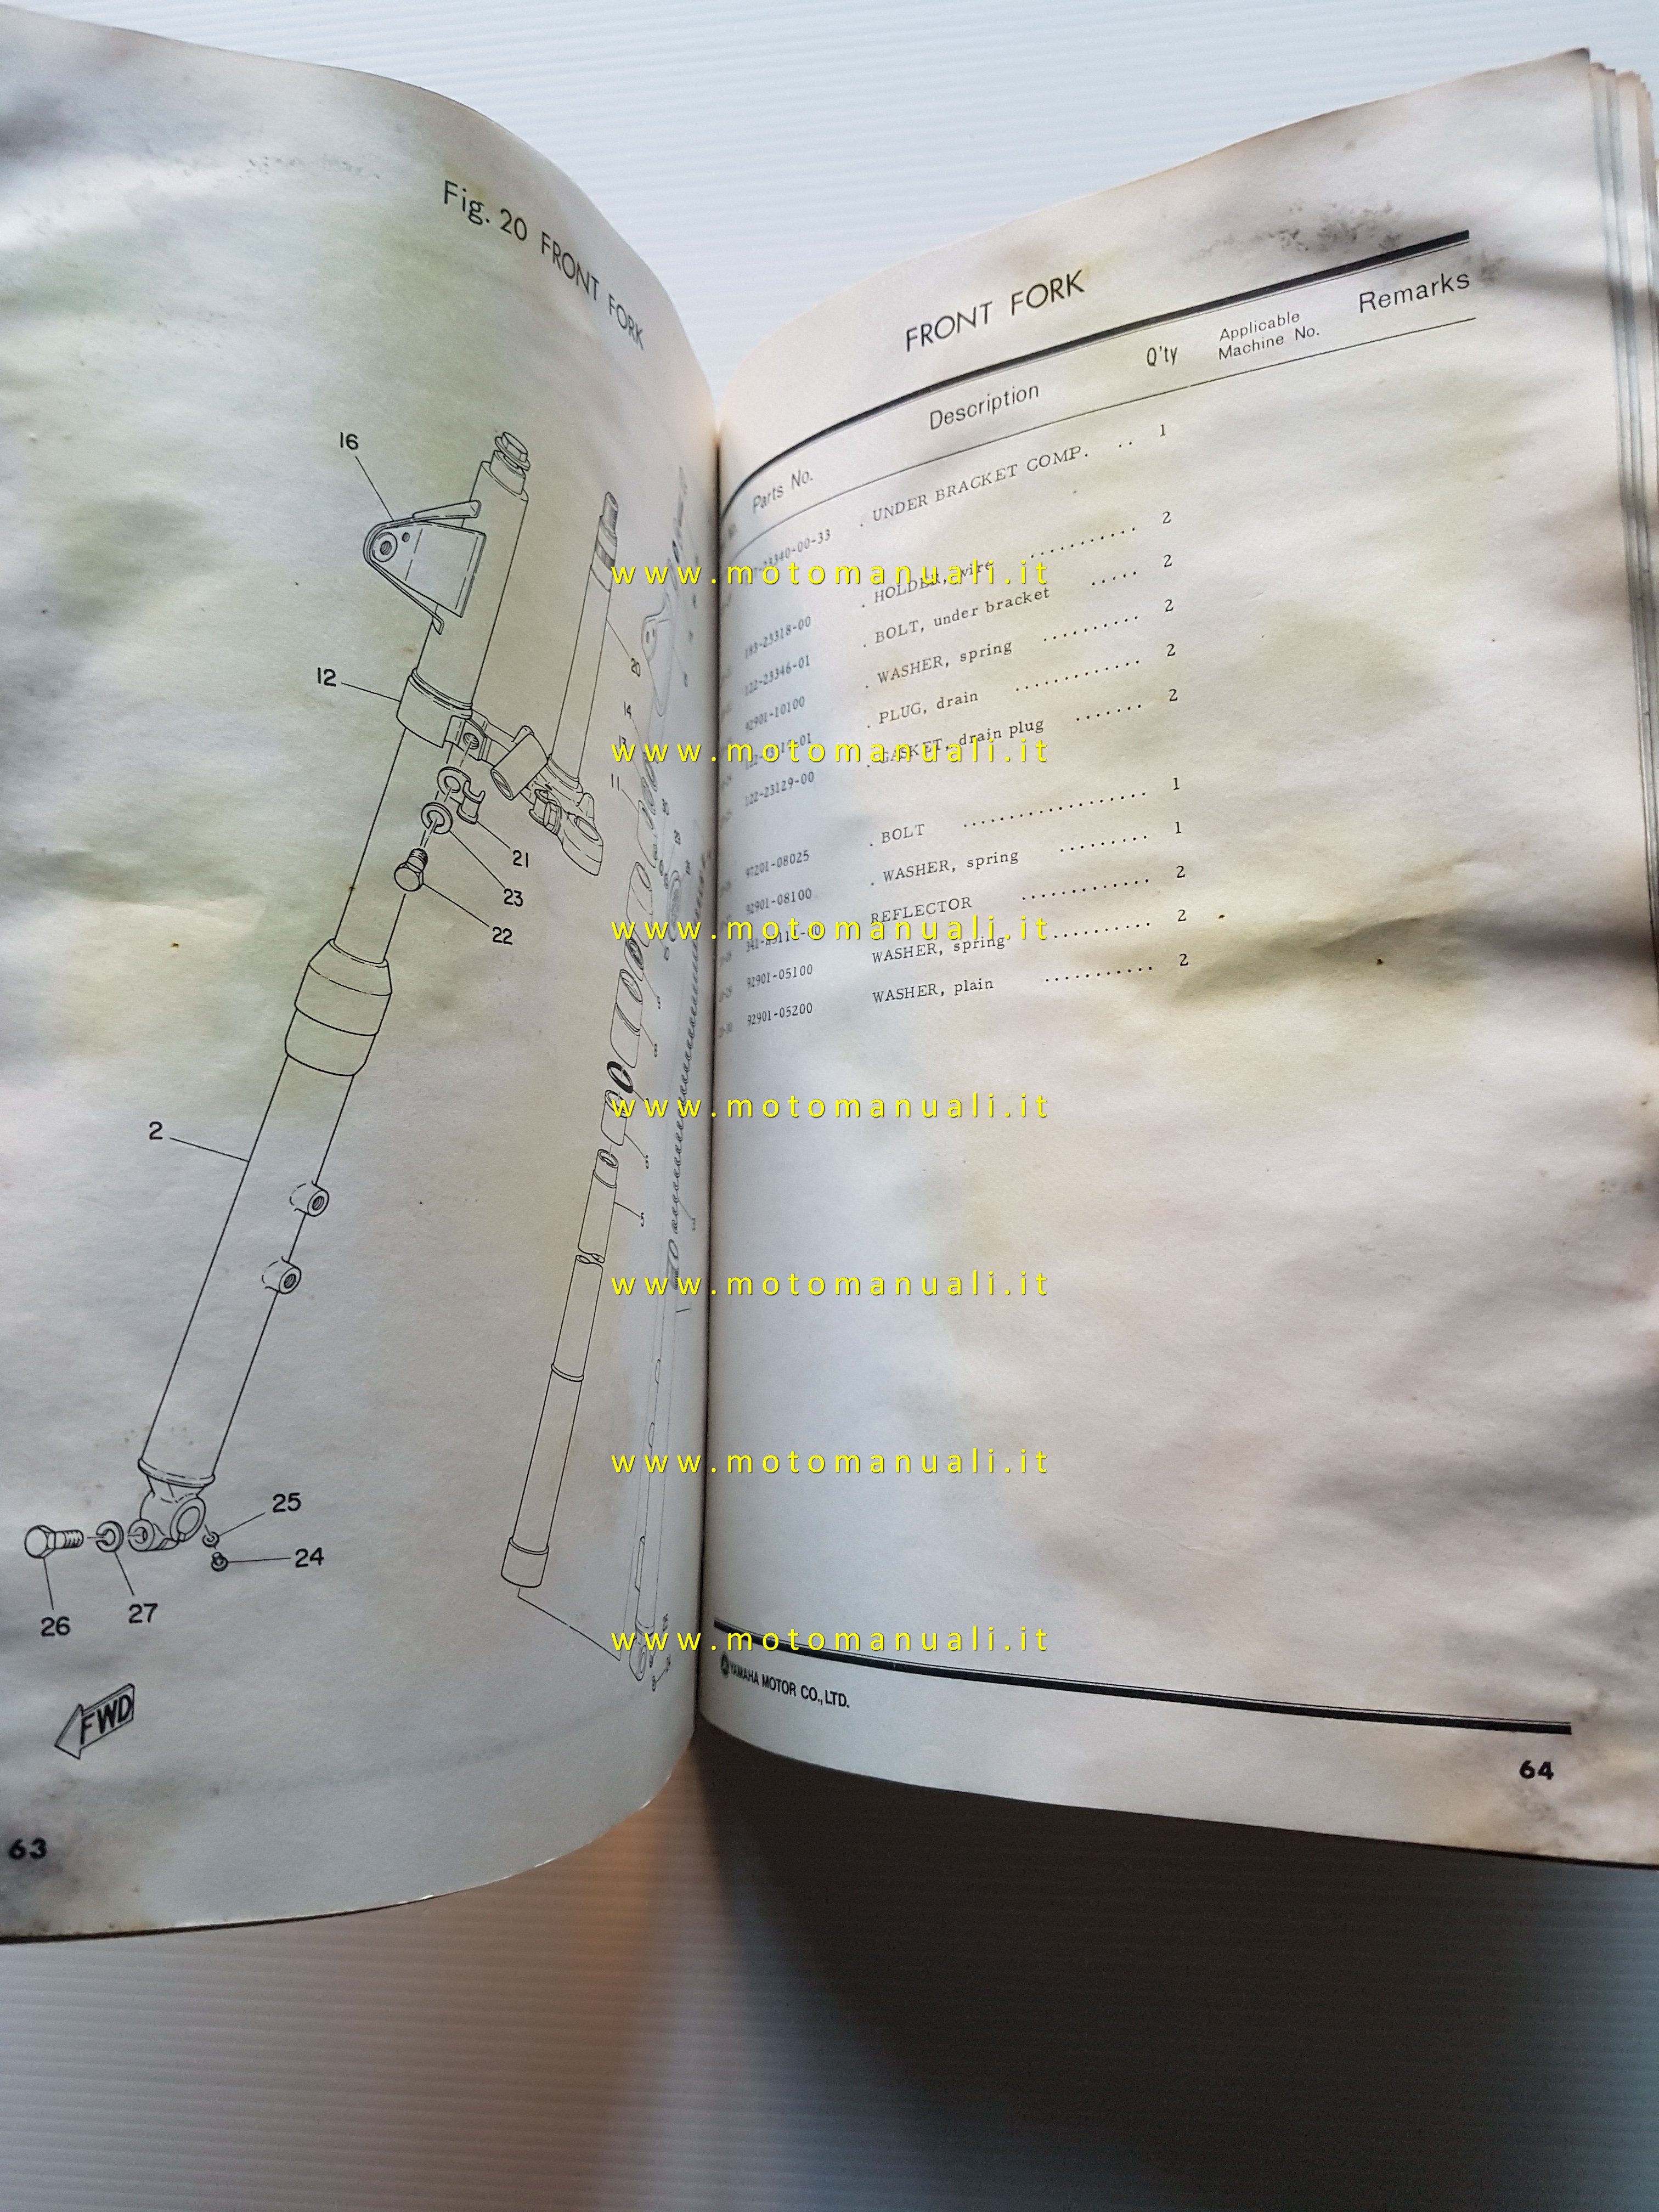 Fig. 20 FRONT FORK
16
12
20
14
13
11
21
23
22
2
25
24
26
27
FWD
63
FRONT FORK
Parts No. Description Q'ty Applicable Machine No. Remarks
-23340-00-33 . UNDER BRACKET COMP. .. 1
183-23318-00 . HOLDER, wire ........... 2
122-23346-01 . BOLT, under bracket ..... 2
92901-10100 . WASHER, spring .......... 2
. PLUG, drain ............. 2
122-23129-00 . GASKET, drain plug ....... 2
97201-08025 . BOLT ................... 1
92901-08100 . WASHER, spring ......... 1
REFLECTOR ............. 2
92901-05100 WASHER, spring ............ 2
92901-05200 WASHER, plain ........... 2
YAMAHA MOTOR CO., LTD.
64
www.motomanuali.it
www.motomanuali.it
www.motomanuali.it
www.motomanuali.it
www.motomanuali.it
www.motomanuali.it
www.motomanuali.it